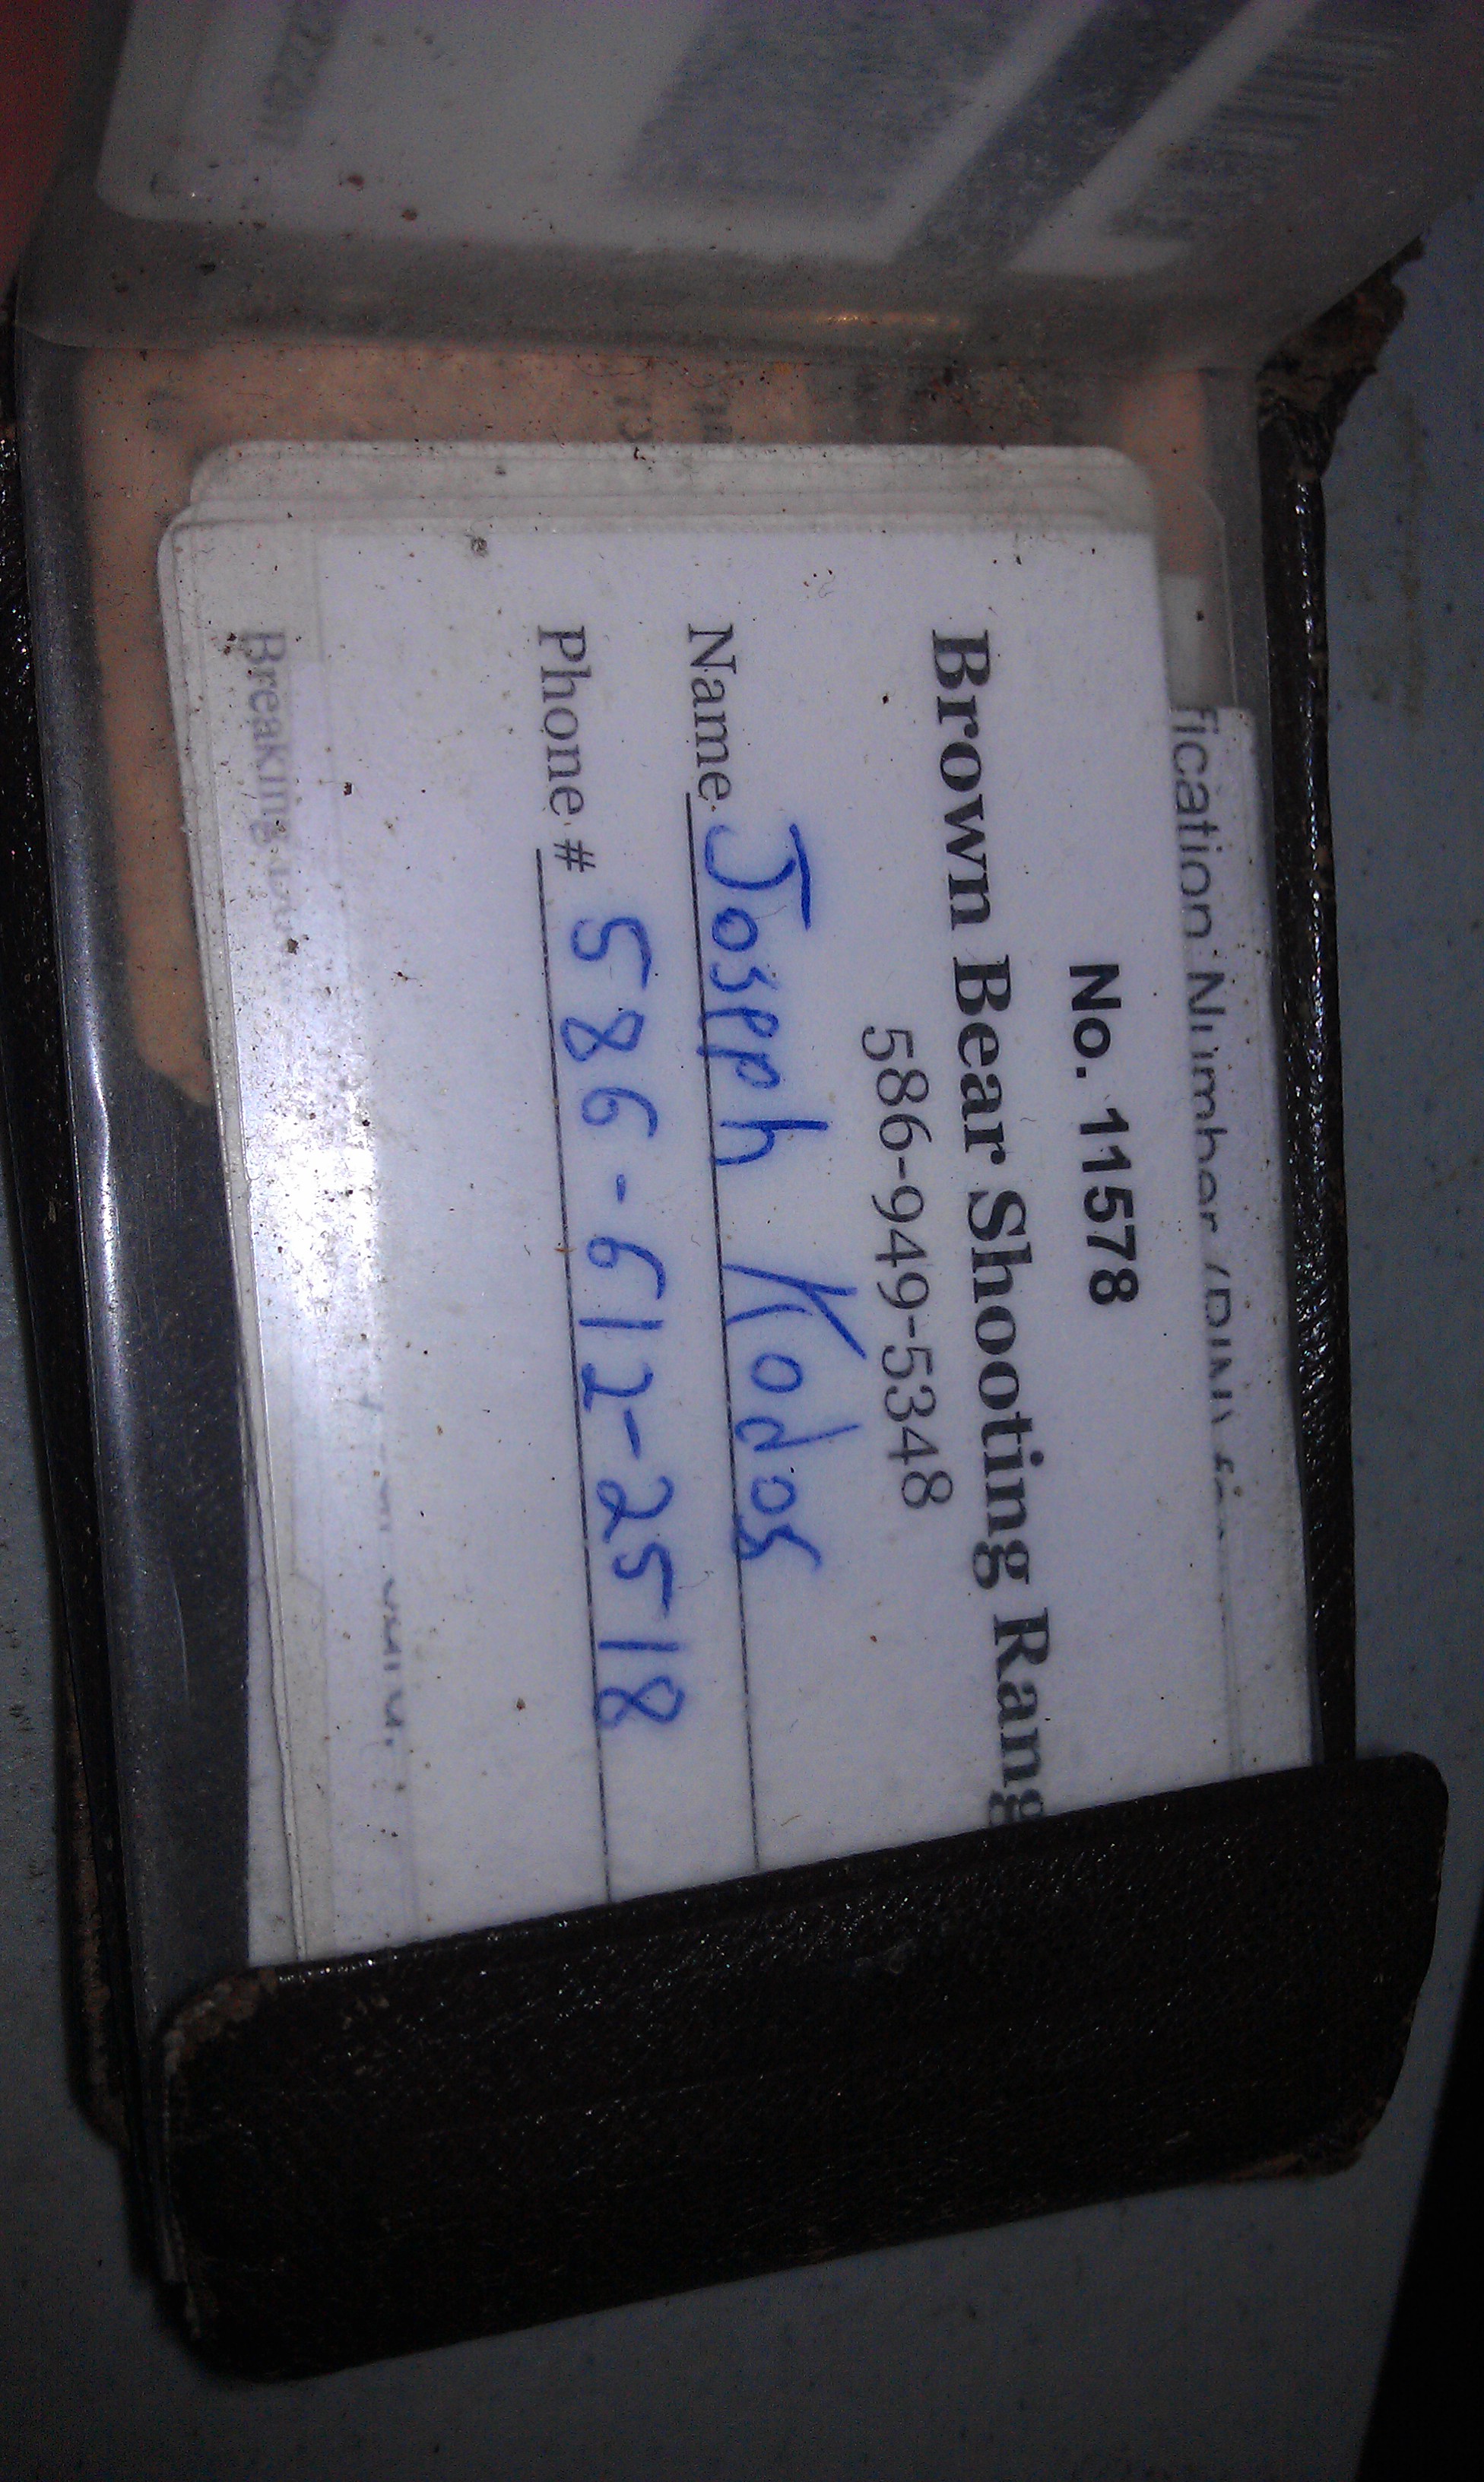 fication Number (PIN)
No. 11578
Brown Bear Shooting Rang
586-949-5348
Name Joseph Kodos
Phone # 586-612-2518
Breaking